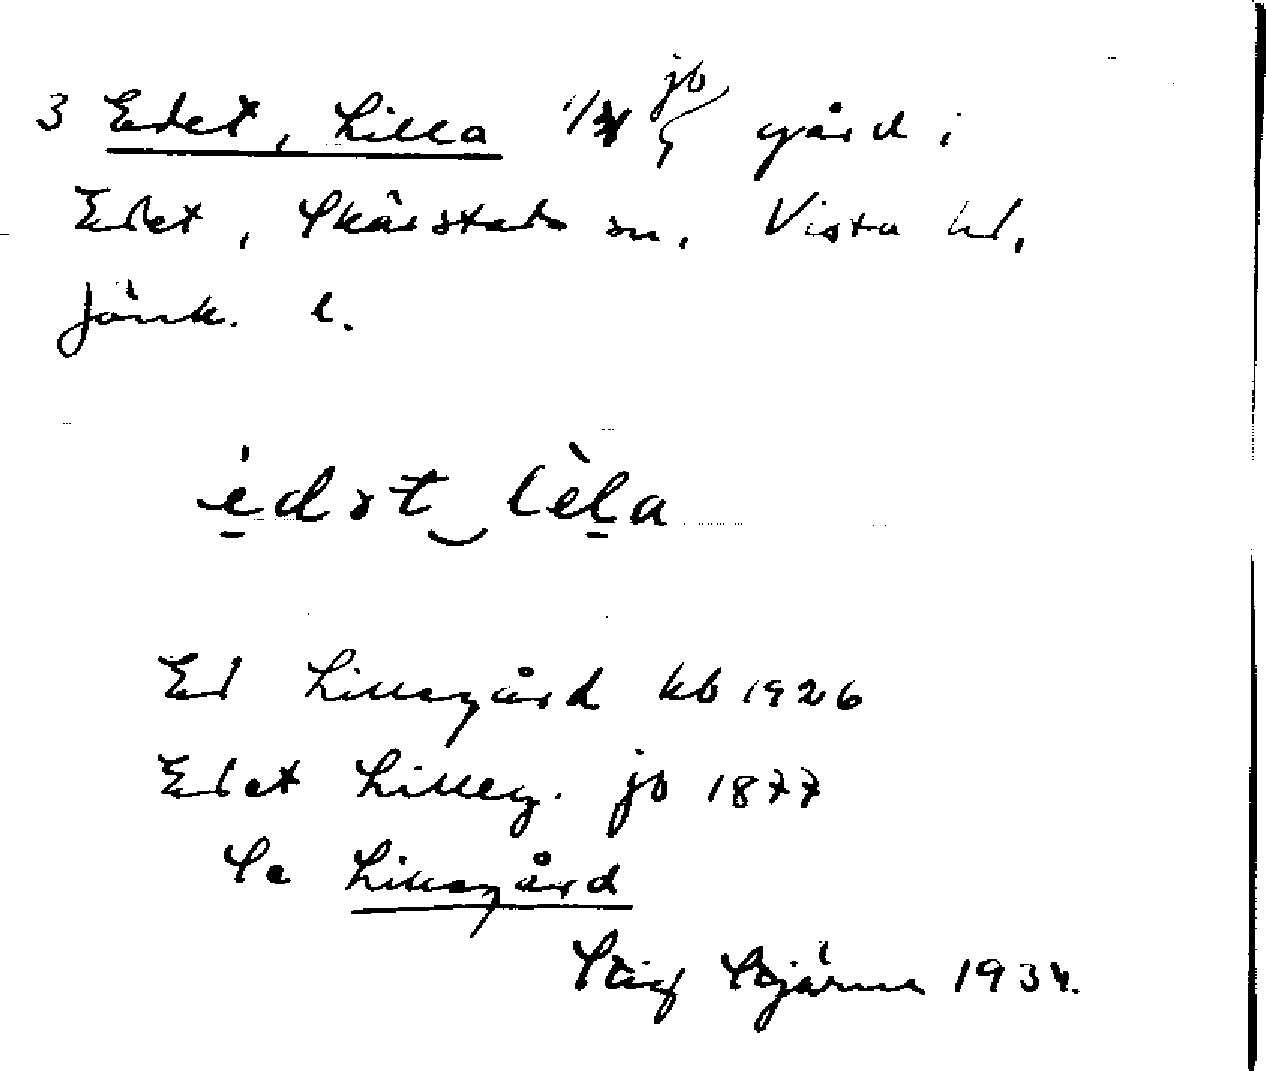 3 Edet, Lilla 1/4 jb gård i
Edet, Skärstads sn, Vista hd,
Jönk. l.
èdət‿lèla
Ed Lillegård kb 1926
Edet Lilleg. jb 1877
Se Lillegård
Stig Stjärne 1934.